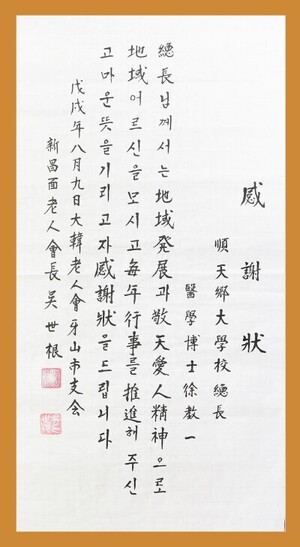 感謝狀
順天鄕大學校總長
醫學博士徐敎一
總長님께서는地域発展과敬天愛人精神으로
地域어르신을모시고每年行事를推進해주신
고마운뜻을기리고자感謝狀을드립니다
戊戌年八月九日大韓老人會牙山市支会
新昌面老人會長吳世根